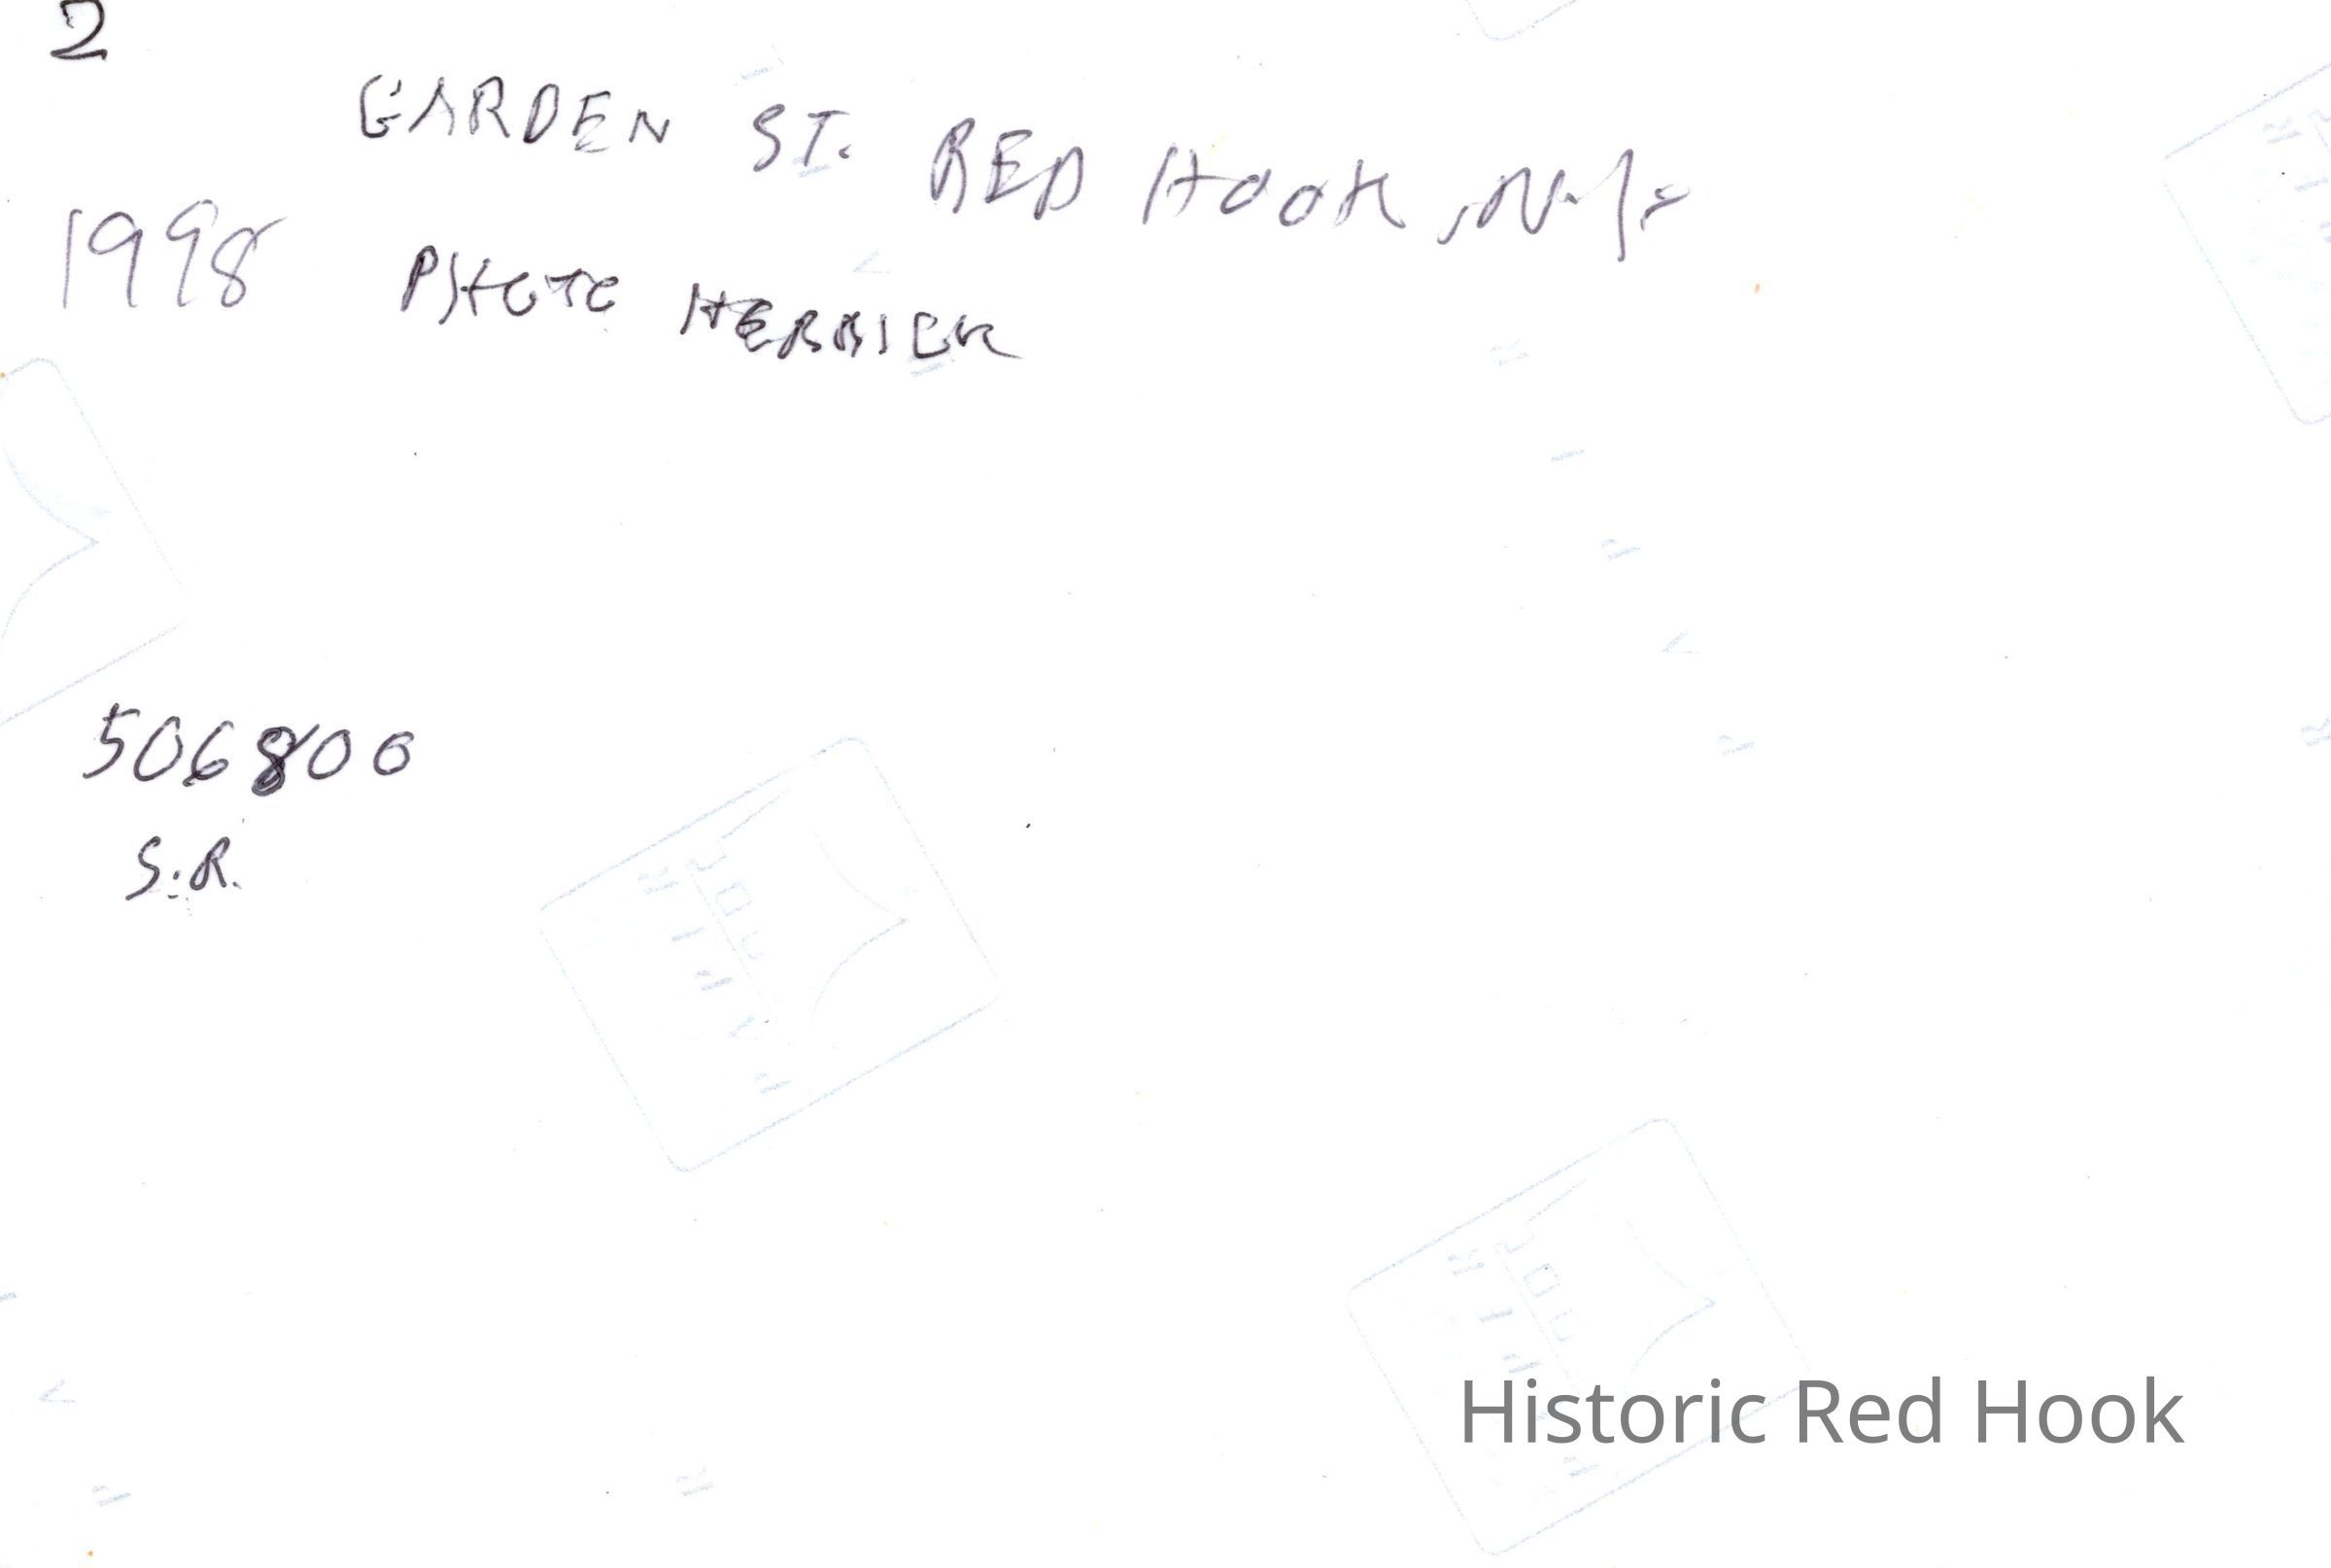 2
GARDEN ST. RED HOOK, N.Y.
1998 PHOTO HERRICK
506800
S.R.
Historic Red Hook